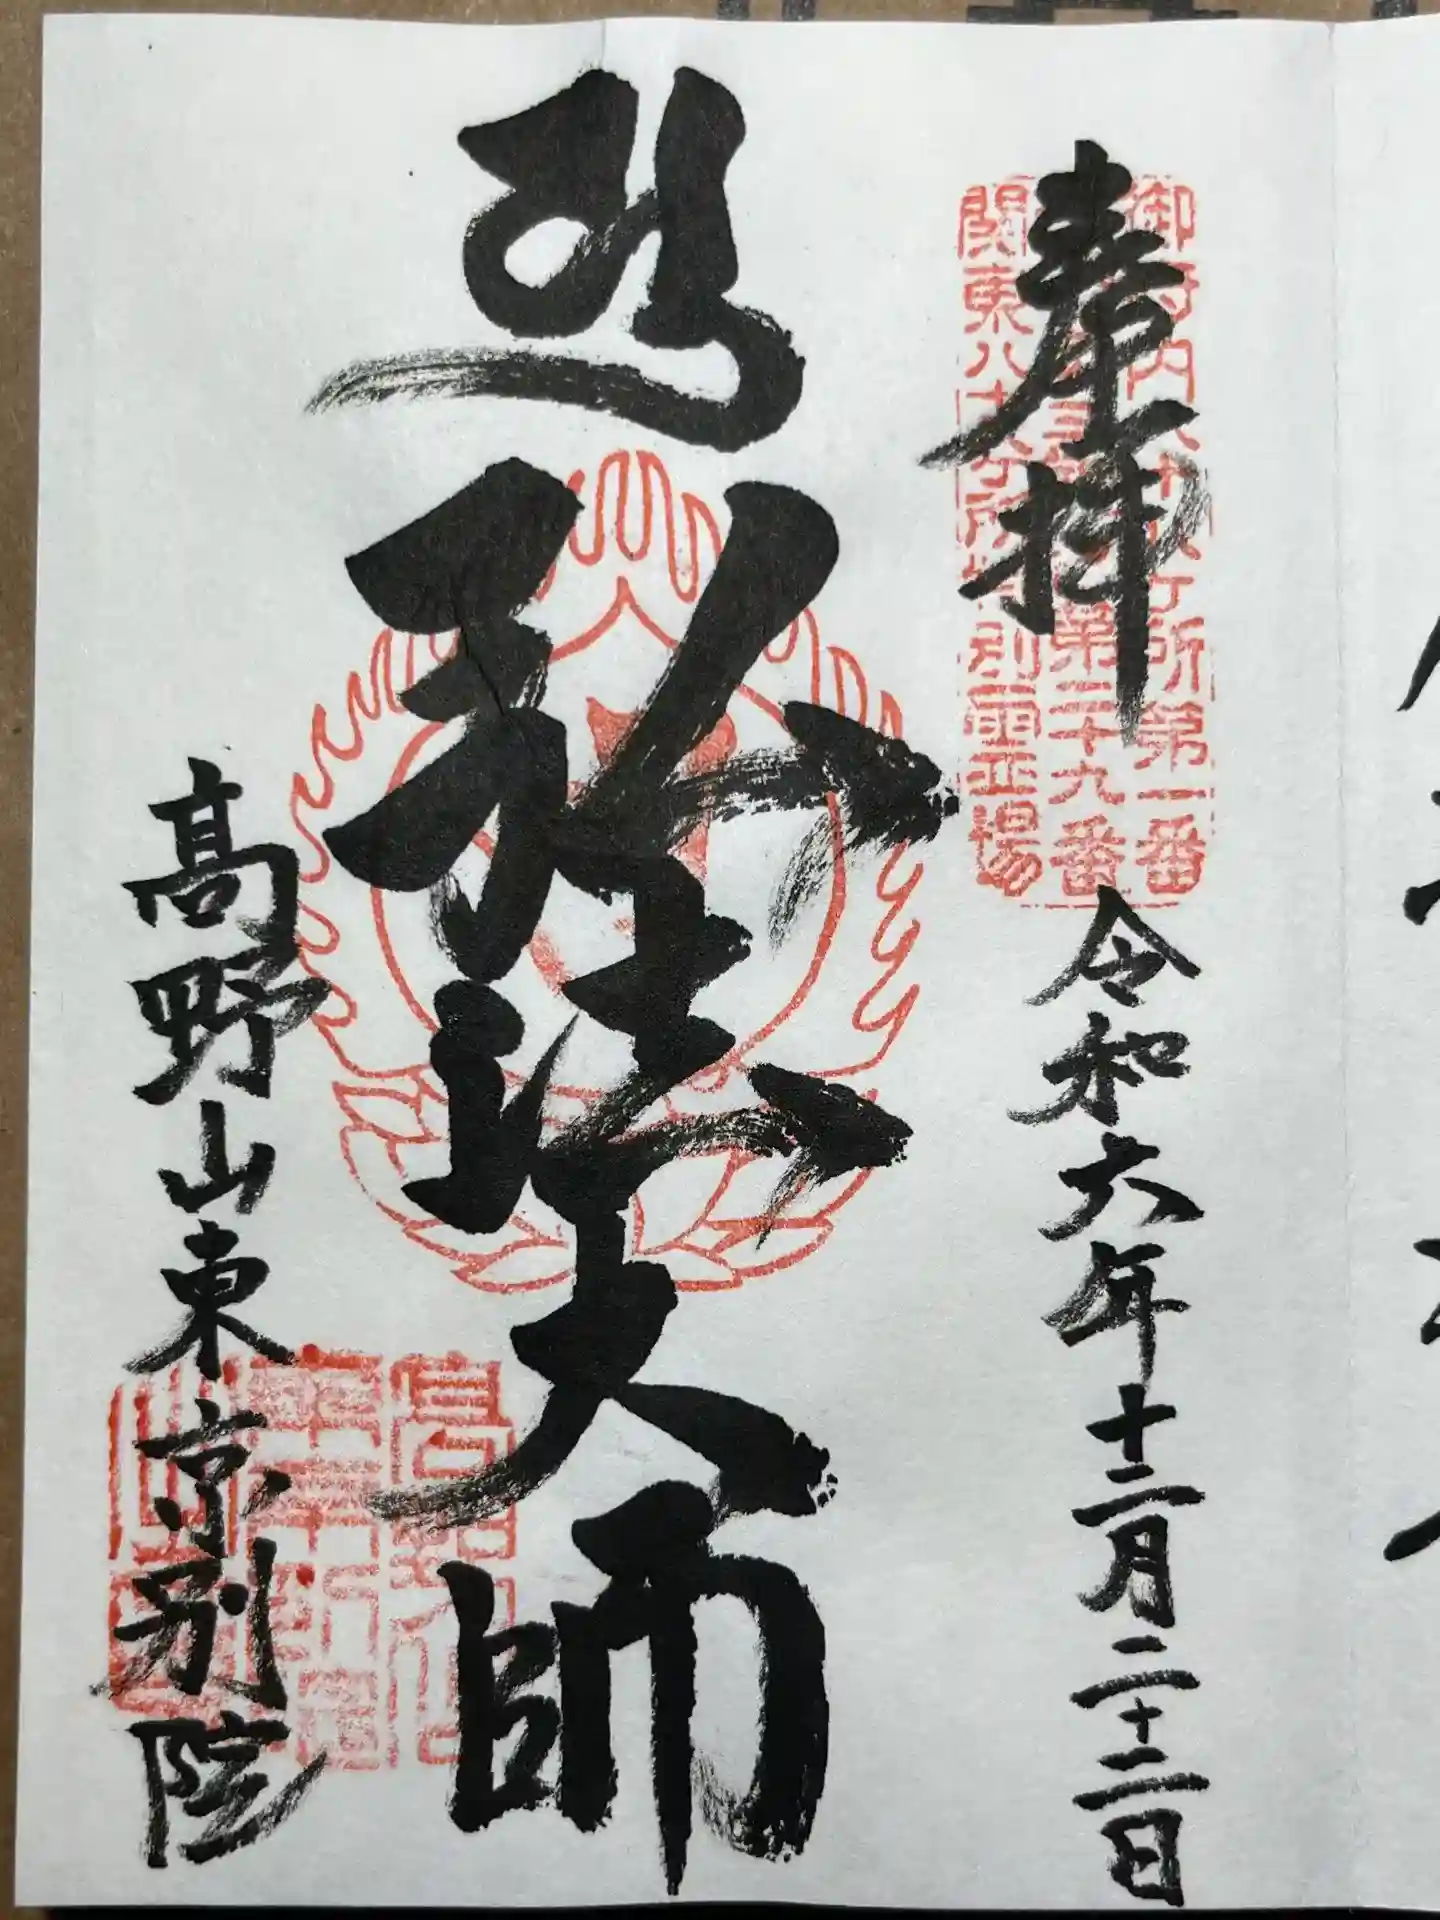 奉拝
令和六年十二月二十二日
御府内八十八ヶ所第一番
第二十九番
関東八十八ヶ所特別霊場
弘法大師
高野山東京別院